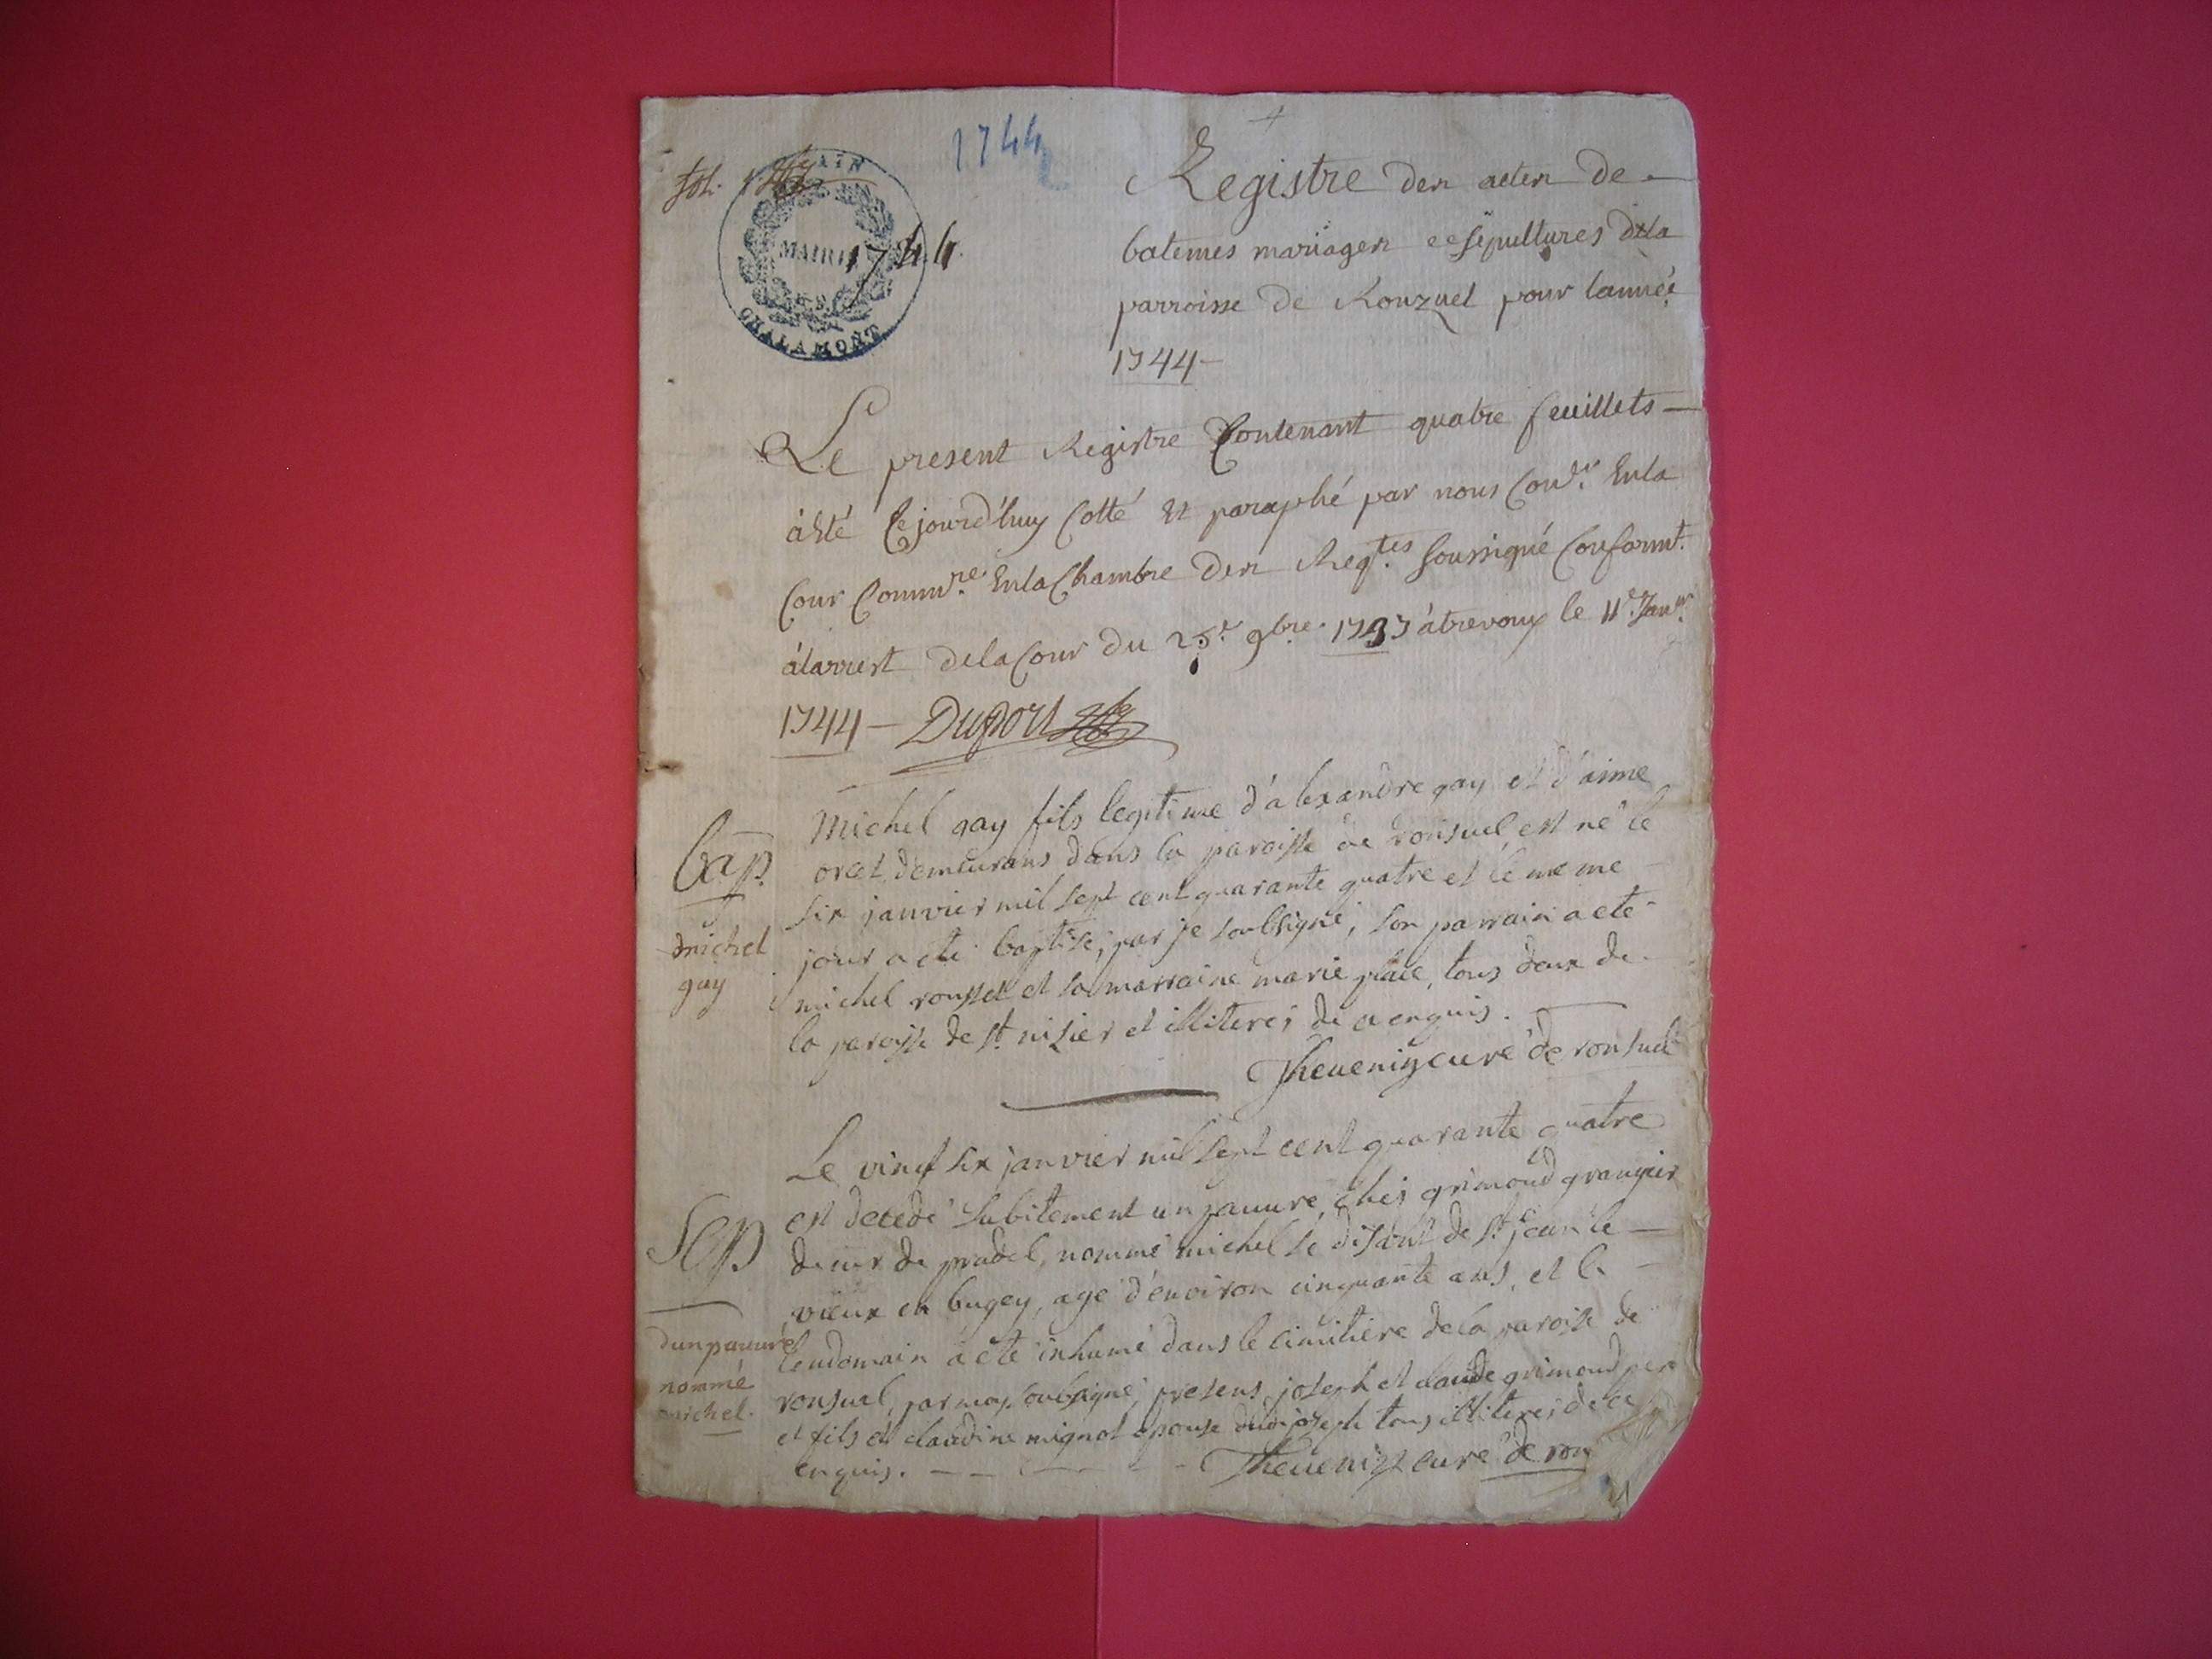 1744
fol. 1.
AIN
MAIRIE
CHALAMONT
1744.
Registre des actes de
batemes mariages et sepultures dela
parroisse de Ronzuel pour lannéé
1744
Le present Registre Contenant quatre feuillets
àesté Cejourd'huy Cotté Et paraphé par nous Conser. Enla
Cour Commre. Enla Chambre des Reqtes. Soussigné Conformt.
àlarrest dela Cour du 25e. 9bre. 1737 àtrevoux le 11e. Janer.
1744 - Duport
Bap.
michel
gay
Michel gay fils legitime d'alexandre gay et d'aime
orcet demeurans dans la paroisse de ronsuel est né le
six janvier mil sept cent quarante quatre et le meme
jour a eté baptisé, par je soubsigné, son parrain a eté
michel rousset et sa marraine marie, tous deux de
la paroisse de st nisier et illiterés de ce enquis.
Thevenin curé de ronsuel
Le vint six janvier mil sept cent quarante quatre
est decedé subitement un pauvre, chés grimond granger
Sep
de mr de pradel, nommé michel se disant de st jean le
vieux en bugey, agé d'environ cinquante ans, et le
dun pauvre
nommé
michel.
lendemain a eté inhumé dans le cimitière de la paroisse de
ronsuel, par moy soubsigné, presens joseph et claude grimond pere
et fils et claudine mignot epouse dudi joseph tous illiterés de ce
enquis. Thevenin curé de ron